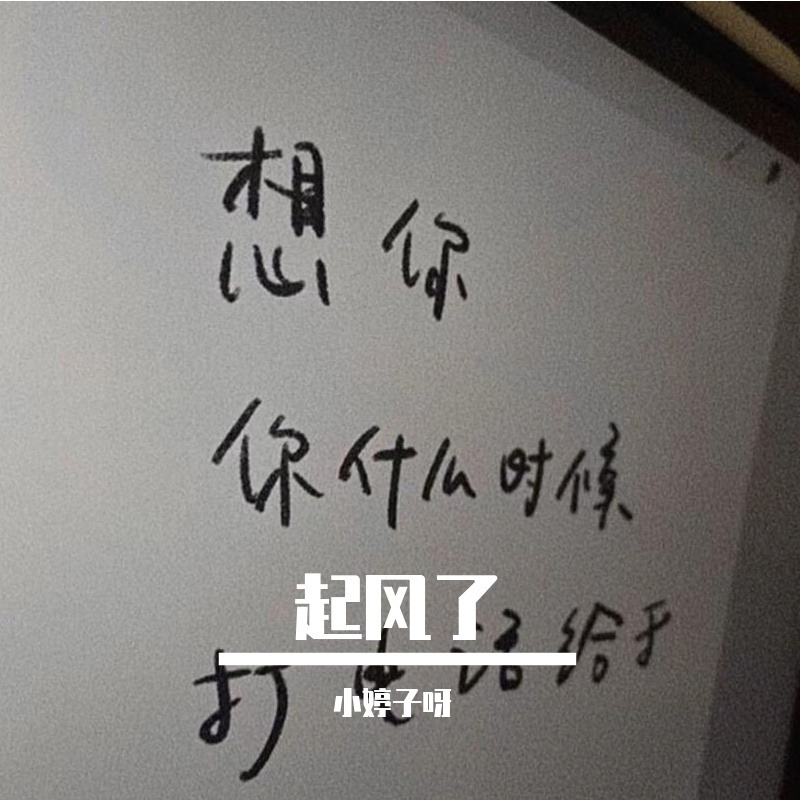 想你
你什么时候
起风了
打电话给
小婷子呀